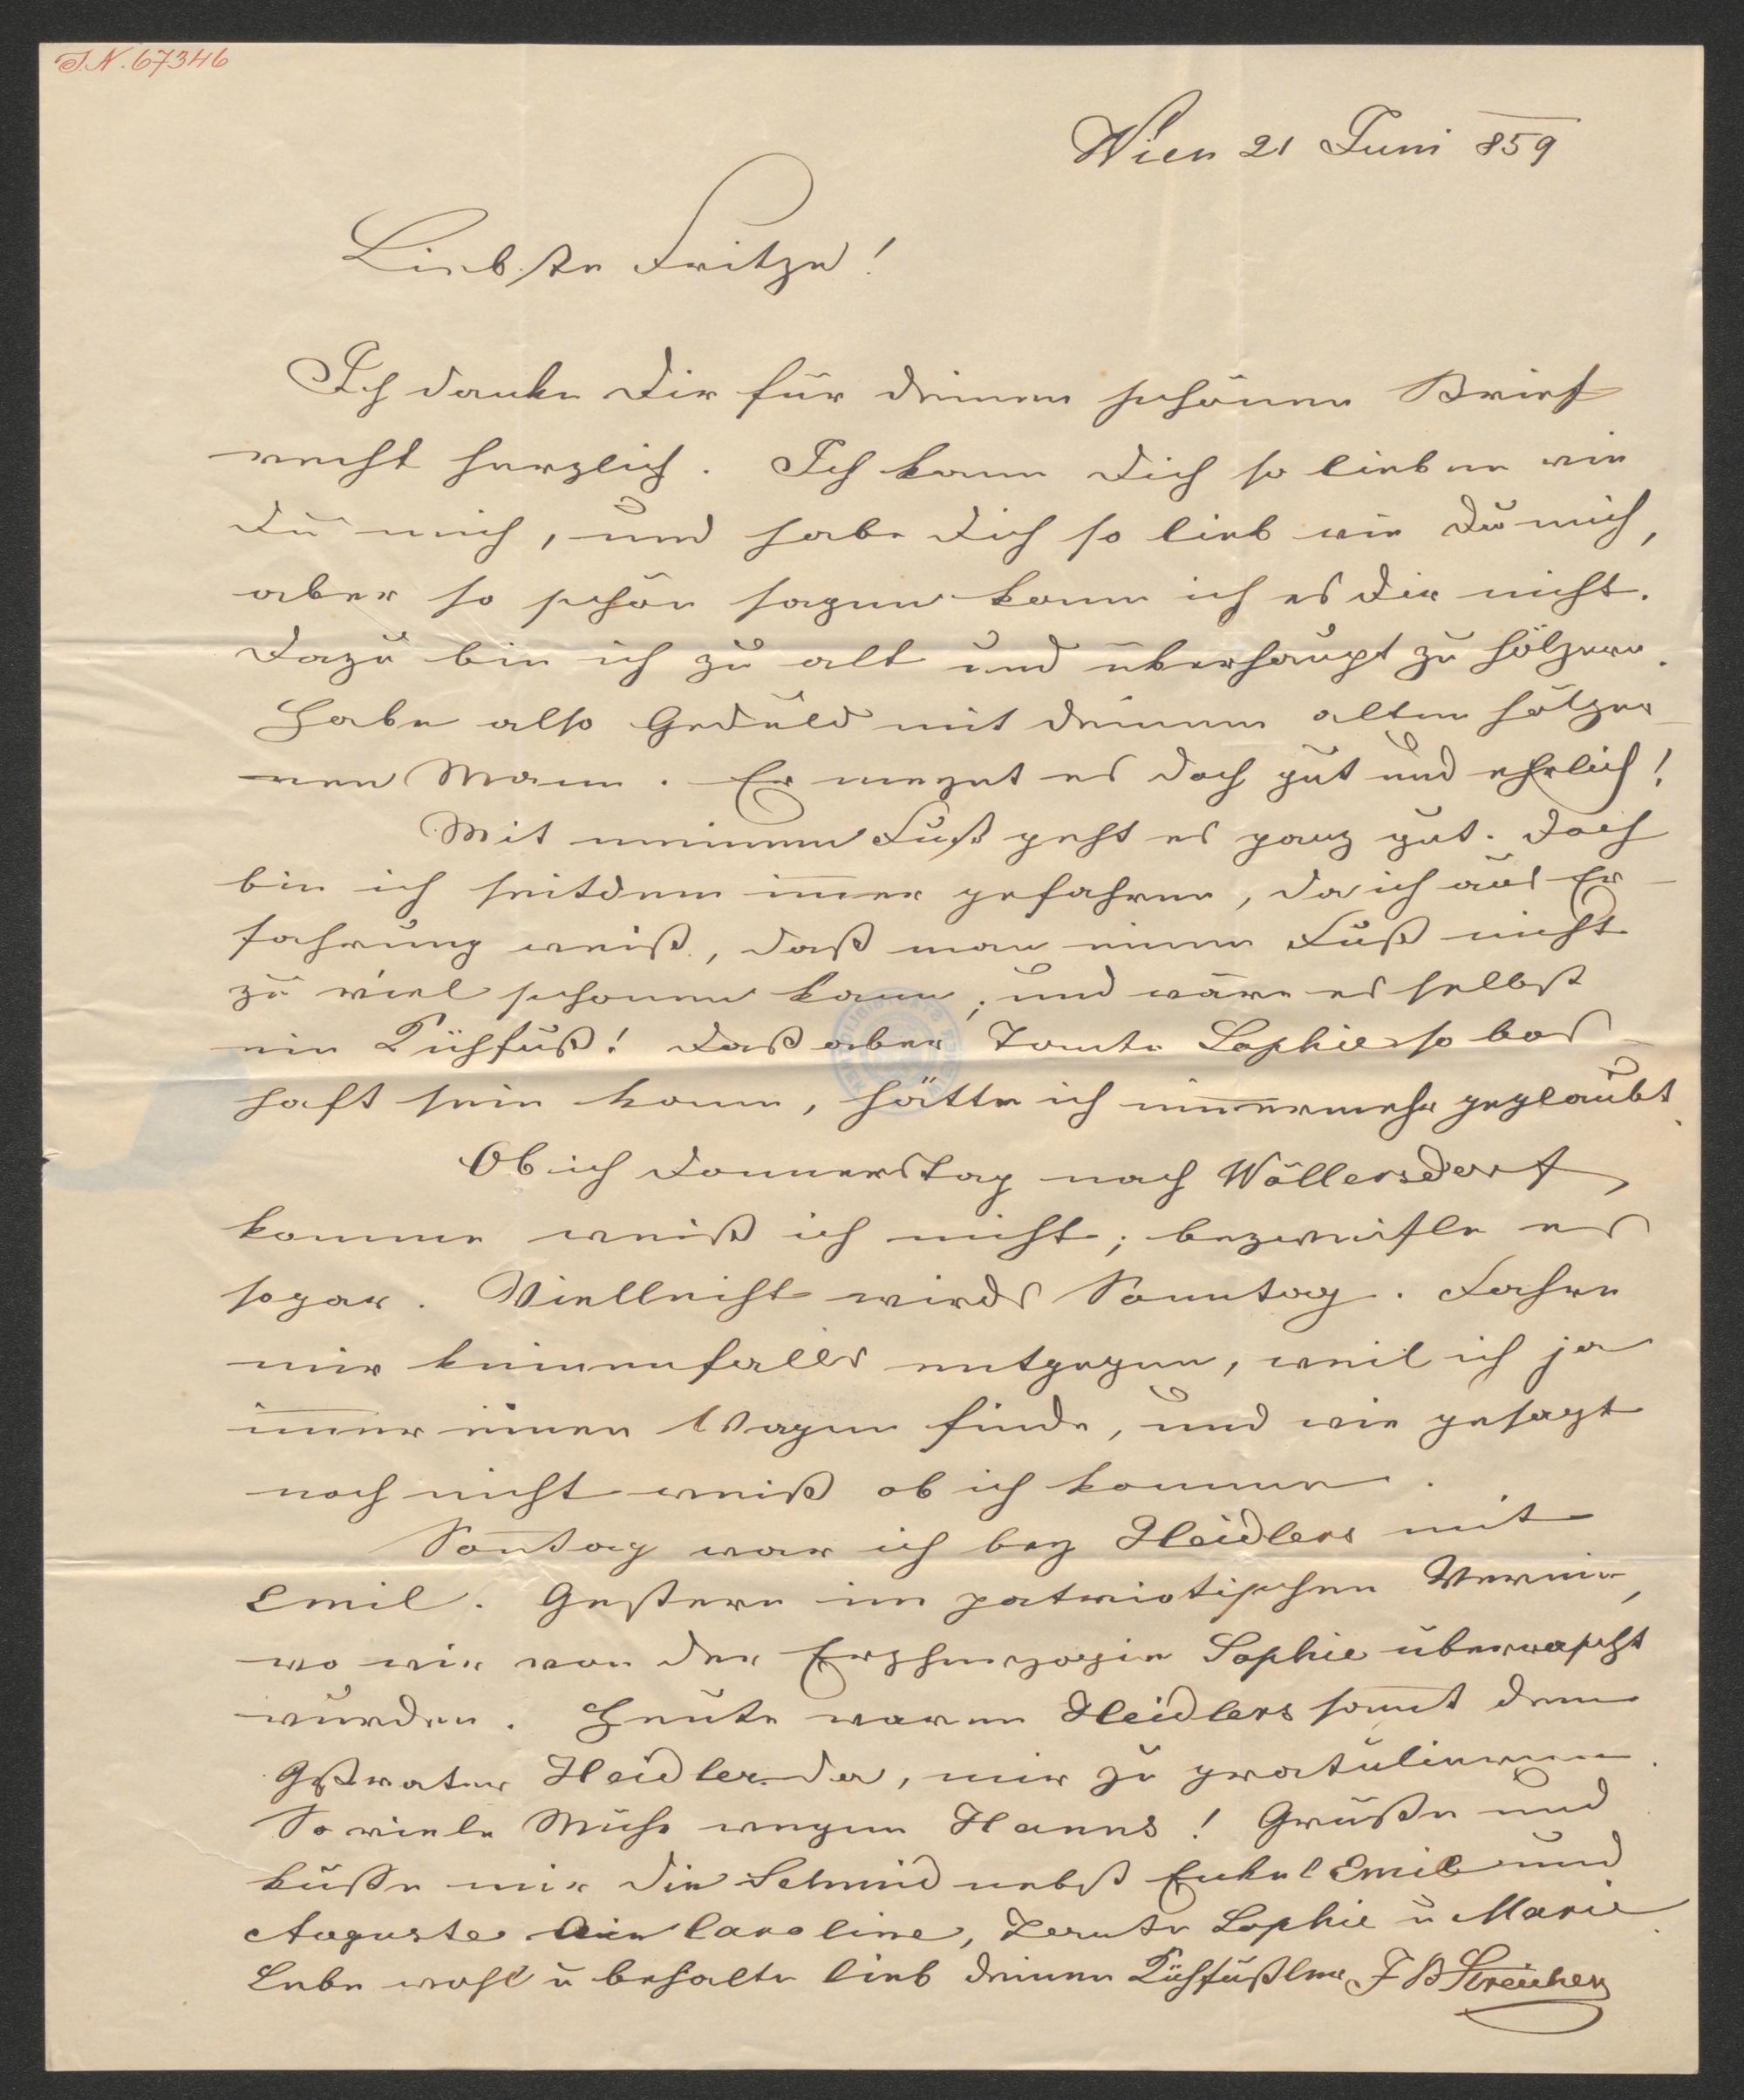 J.N. 67346
Wien 21 Juni 859
Liebste Fritze!
Ich danke Dir für deinen schönen Brief
recht herzlich. Ich kann Dich so lieben wie
Du mich, und habe Dich so lieb wie Du mich,
aber so schön sagen kann ich es Dir nicht.
Dazu bin ich zu alt und überhaupt zu hölzern.
Habe also Geduld mit deinem alten hölzer-
nen Mann. Er meynt es doch gut und ehrlich!
Mit meinem Fuß geht es ganz gut. Doch
bin ich seitdem im̅er gefahren, da ich aus Er-
fahrung weiß, daß man einen Fuß nicht
zu viel schonen kann, und wäre es selbst
ein Kühfuß! Daß aber Tante Sophie so bos-
haft sein kann, hätte ich nim̅ermehr geglaubt.
Ob ich Donnerstag nach Wöllersdorf
komme weiß ich nicht; bezweifle es
sogar. Vielleicht wirds Sonntag. Fahre
mir keinenfalls entgegen, weil ich ja
im̅er einen Wagen finde, und wie gesagt
noch nicht weiß ob ich komme.
Son̅tag war ich bey Heidlers mit
Emil. Gestern im patriotischen Verein,
wo wir von der Erzherzogin Sophie überrascht
wurden. Heute waren Heidlers sam̅t dem
Heidler da, mir zu gratulieren.
So viele Mühe wegen Hanns! Grüße und
küsse mir die Schmid nebst Enkel Emil und
Auguste Caroline, Tante Sophie u Marie.
Lebe wohl u behalte lieb deinen Kühfüßlen J B Streicher